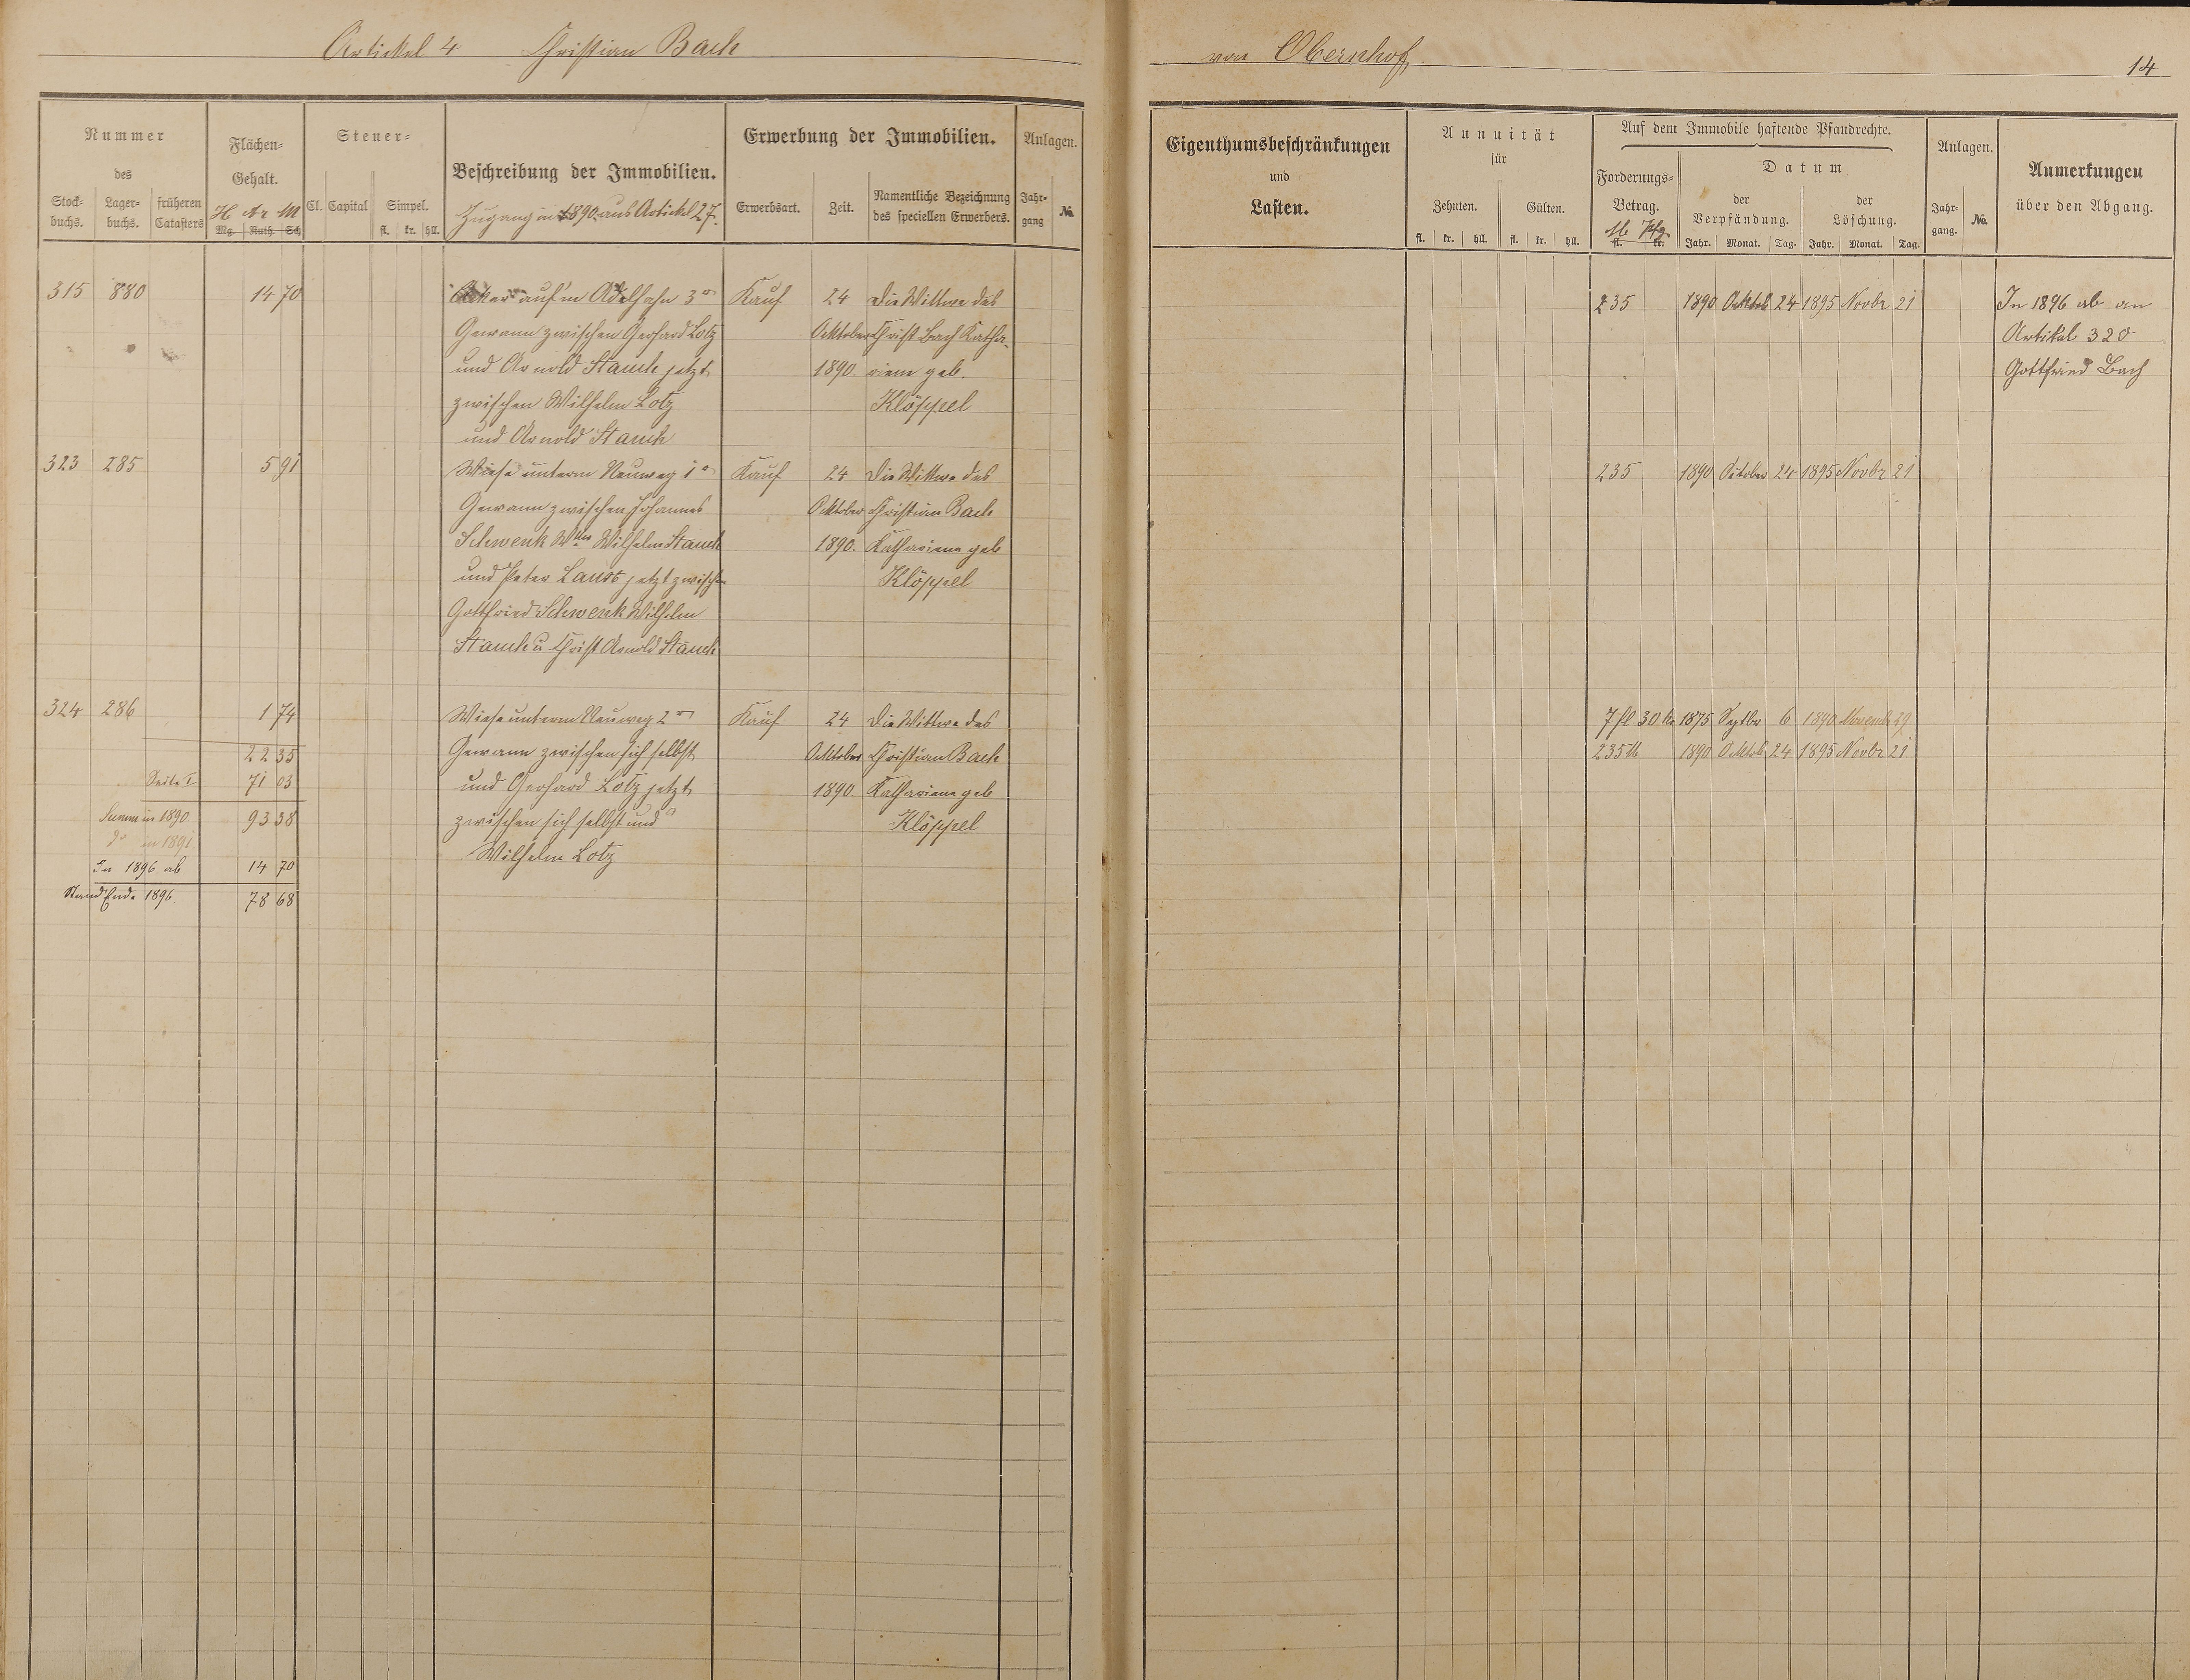 Artickel 4 Christian Bach
von Obernhof.
14
Nummer
des
Stock-
buchs.
Lager-
buchs.
früheren
Catasters
Flächen-
Gehalt.
H Ar M
Mg. Ruth. Sch
Steuer-
Cl. Capital Simpel.
fl. kr. hll.
Beschreibung der Immobilien.
Zugang in 1890 aus Artickel 27.
Erwerbung der Immobilien.
Erwerbsart. Zeit.
Namentliche Bezeichnung
des speciellen Erwerbers.
Anlagen.
Jahr-
gang
No.
315 880 14 70
Acker auf'm Adelhahn 3r
Gewann zwischen Gerhard Lotz
und Arnold Stauch jetzt
zwischen Wilhelm Lotz
und Arnold Stauch
Kauf
24
Oktober
1890.
Die Wittwe des
Christ Bach Katha-
riena geb.
Klöppel
323 285 5 91
Wiese unterm Neuweg 1r
Gewann zwischen Johannes
Schwenk Wtw Wilhelm Stauch
und Peter Laust jetzt zwischen
Gottfried Schwenk Wilhelm
Stauch u Christ Arnold Stauch
Kauf
24
Oktober
1890.
Die Wittwe des
Christian Bach
Kathariena geb
Klöppel
324 286 1 74
22 35
Seite 1 71 03
Summe in 1890 93 38
do in 1891
In 1896 ab 14 70
Stand Ende 1896 78 68
Wiese unterm Neuweg 2r
Gewann zwischen sich selbst
und Gerhard Lotz jetzt
zwischen sich selbst und
Wilhelm Lotz
Kauf
24
Oktober
1890
Die Wittwe des
Christian Bach
Kathariena geb
Klöppel
Eigenthumsbeschränkungen
und
Lasten.
Annuität
für
Zehnten. Gülten.
fl. kr. hll. fl. kr. hll.
Auf dem Immobile haftende Pfandrechte.
Forderungs-
Betrag.
M Pfg
fl. kr.
Datum
der
Verpfändung.
Jahr. Monat. Tag.
der
Löschung.
Jahr. Monat. Tag.
Anlagen.
Jahr-
gang.
No.
Anmerkungen
über den Abgang.
235 1890 Oktob 24 1895 Novbr 21
In 1896 ab an
Artikel 320
Gottfried Bach
235 1890 October 24 1895 Novbr 21
7 fl 30 kr 1875 Septbr 6 1890 Novemb 29
235 M 1890 Oktob 24 1895 Novbr 21